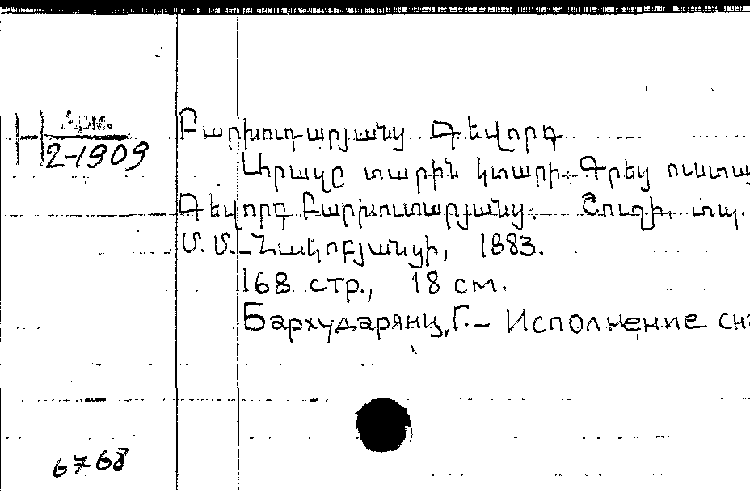 Арм.
Н 2-1909
Բարխուդարյանց Գեվորգ
Աիրակը տարին կտարի. Գրեց ուստա
Գեվորգ Բարխուտարյանց. Շուշի, տպ.
Մ. Մ. Հակոբյանցի, 1883.
168 стр., 18 см.
Бархударянц, Г. – Исполнение сн
6768